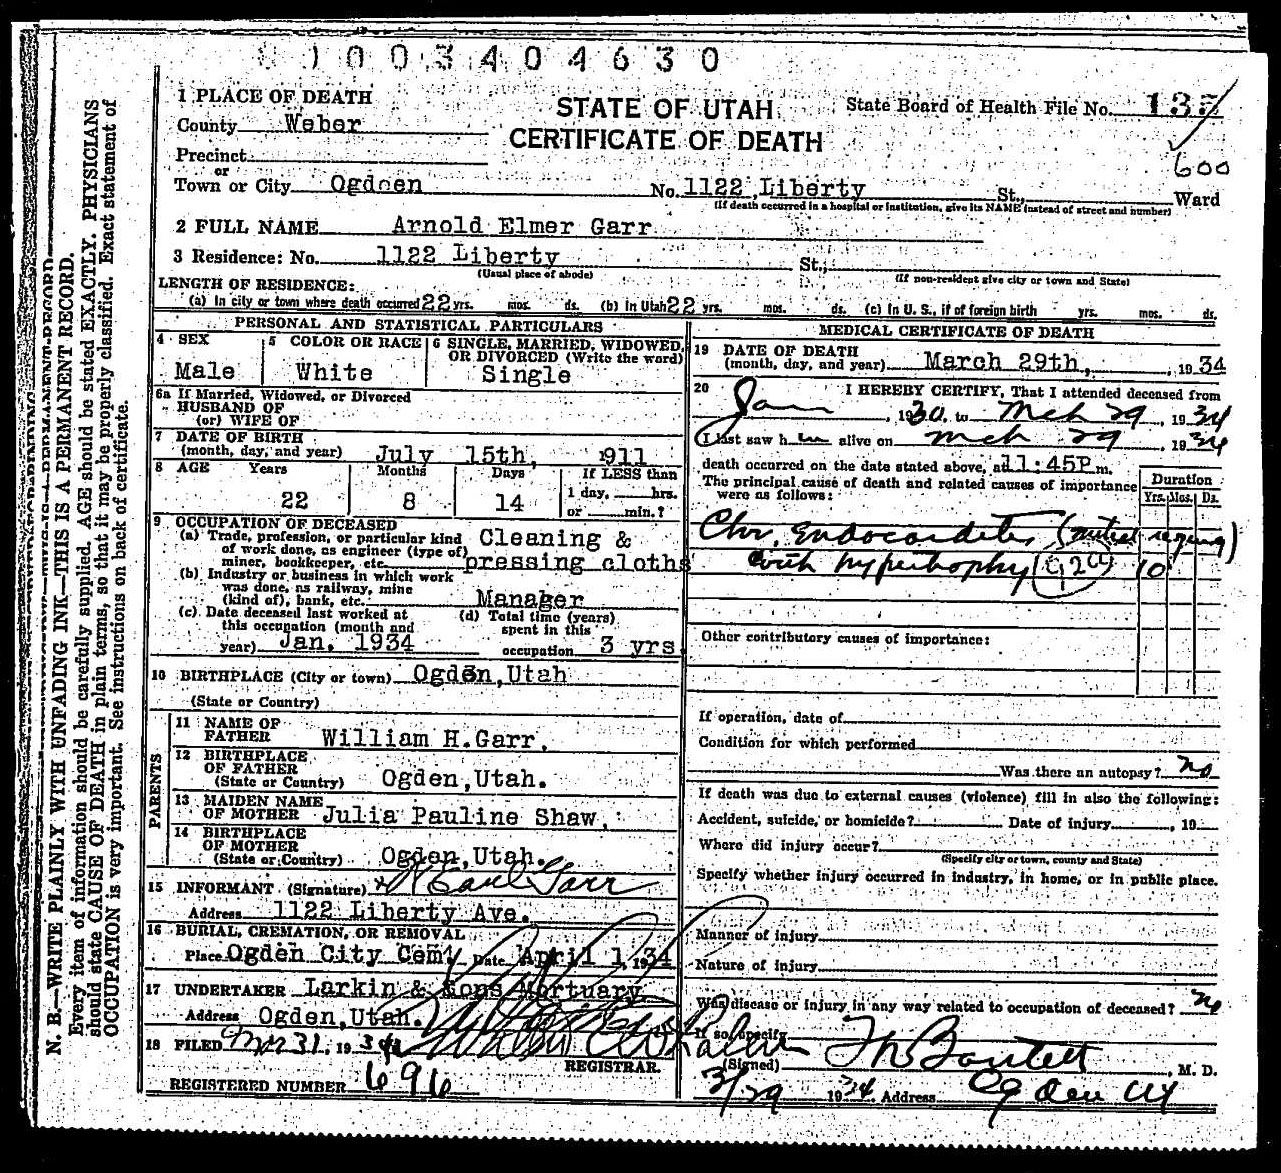 1003404630
1 PLACE OF DEATH
STATE OF UTAH
CERTIFICATE OF DEATH
State Board of Health File No. 135
600
County Weber
Precinct
or
Town or City Ogdeen No. 1122 Liberty St., Ward
(If death occurred in a hospital or institution, give its NAME instead of street and number)
2 FULL NAME Arnold Elmer Garr
3 Residence: No. 1122 Liberty St.,
(Usual place of abode) (If non-resident give city or town and State)
LENGTH OF RESIDENCE:
(a) In city or town where death occurred 22 yrs. mos. ds. (b) In Utah 22 yrs. mos. ds. (c) In U. S., if of foreign birth yrs. mos. ds.
PERSONAL AND STATISTICAL PARTICULARS
4 SEX
Male
5 COLOR OR RACE
White
6 SINGLE, MARRIED, WIDOWED,
OR DIVORCED (Write the word)
Single
6a If Married, Widowed, or Divorced
HUSBAND OF
(or) WIFE OF
7 DATE OF BIRTH
(month, day, and year) July 15th, 1911
8 AGE Years Months Days If LESS than
22 8 14 1 day, hrs.
or min.?
9 OCCUPATION OF DECEASED
(a) Trade, profession, or particular kind
of work done, as engineer (type of)
miner, bookkeeper, etc. Cleaning &
pressing cloths
(b) Industry or business in which work
was done, as railway, mine
(kind of), bank, etc. Manager
(c) Date deceased last worked at
this occupation (month and
year) Jan. 1934
(d) Total time (years)
spent in this
occupation 3 yrs
10 BIRTHPLACE (City or town) Ogden, Utah
(State or Country)
PARENTS
11 NAME OF
FATHER William H. Garr.
12 BIRTHPLACE
OF FATHER
(State or Country) Ogden, Utah.
13 MAIDEN NAME
OF MOTHER Julia Pauline Shaw,
14 BIRTHPLACE
OF MOTHER
(State or Country) Ogden, Utah.
15 INFORMANT (Signature) Earl Garr
Address 1122 Liberty Ave.
16 BURIAL, CREMATION, OR REMOVAL
Place Ogden City Cemy Date April 1, 1934
17 UNDERTAKER Larkin & Sons Mortuary
Address Ogden, Utah.
18 FILED Mar 31, 1934
REGISTRAR.
REGISTERED NUMBER 696
MEDICAL CERTIFICATE OF DEATH
19 DATE OF DEATH
(month, day, and year) March 29th, 1934
20 I HEREBY CERTIFY, That I attended deceased from
Jan, 1930, to Mch 29, 1934
I last saw him alive on Mch 29, 1934
death occurred on the date stated above, at 11:45P m.
The principal cause of death and related causes of importance
were as follows:
Duration
Yrs. Mos. Ds.
Chr. Endocarditis (mitral regurg)
with hypertrophy 10
Other contributory causes of importance:
If operation, date of
Condition for which performed
Was there an autopsy? no
If death was due to external causes (violence) fill in also the following:
Accident, suicide, or homicide? Date of injury, 19
Where did injury occur?
(Specify city or town, county and State)
Specify whether injury occurred in industry, in home, or in public place.
Manner of injury
Nature of injury
Was disease or injury in any way related to occupation of deceased? no
If so, specify
(Signed) M. D.
3/29 1934 Address Ogden Ut
N. B.—WRITE PLAINLY WITH UNFADING INK—THIS IS A PERMANENT RECORD.
Every item of information should be carefully supplied. AGE should be stated EXACTLY. PHYSICIANS
should state CAUSE OF DEATH in plain terms, so that it may be properly classified. Exact statement of
OCCUPATION is very important. See instructions on back of certificate.